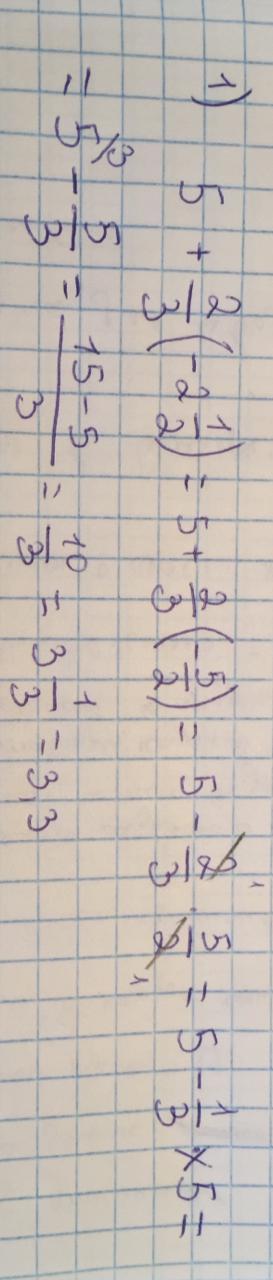 1) 5 + 2/3 (-2 1/2) = 5 + 2/3 (-5/2) = 5 - 2/3 · 5/2 = 5 - 1/3 × 5 =
= 5/3 - 5/3 = (15 - 5)/3 = 10/3 = 3 1/3 = 3,3